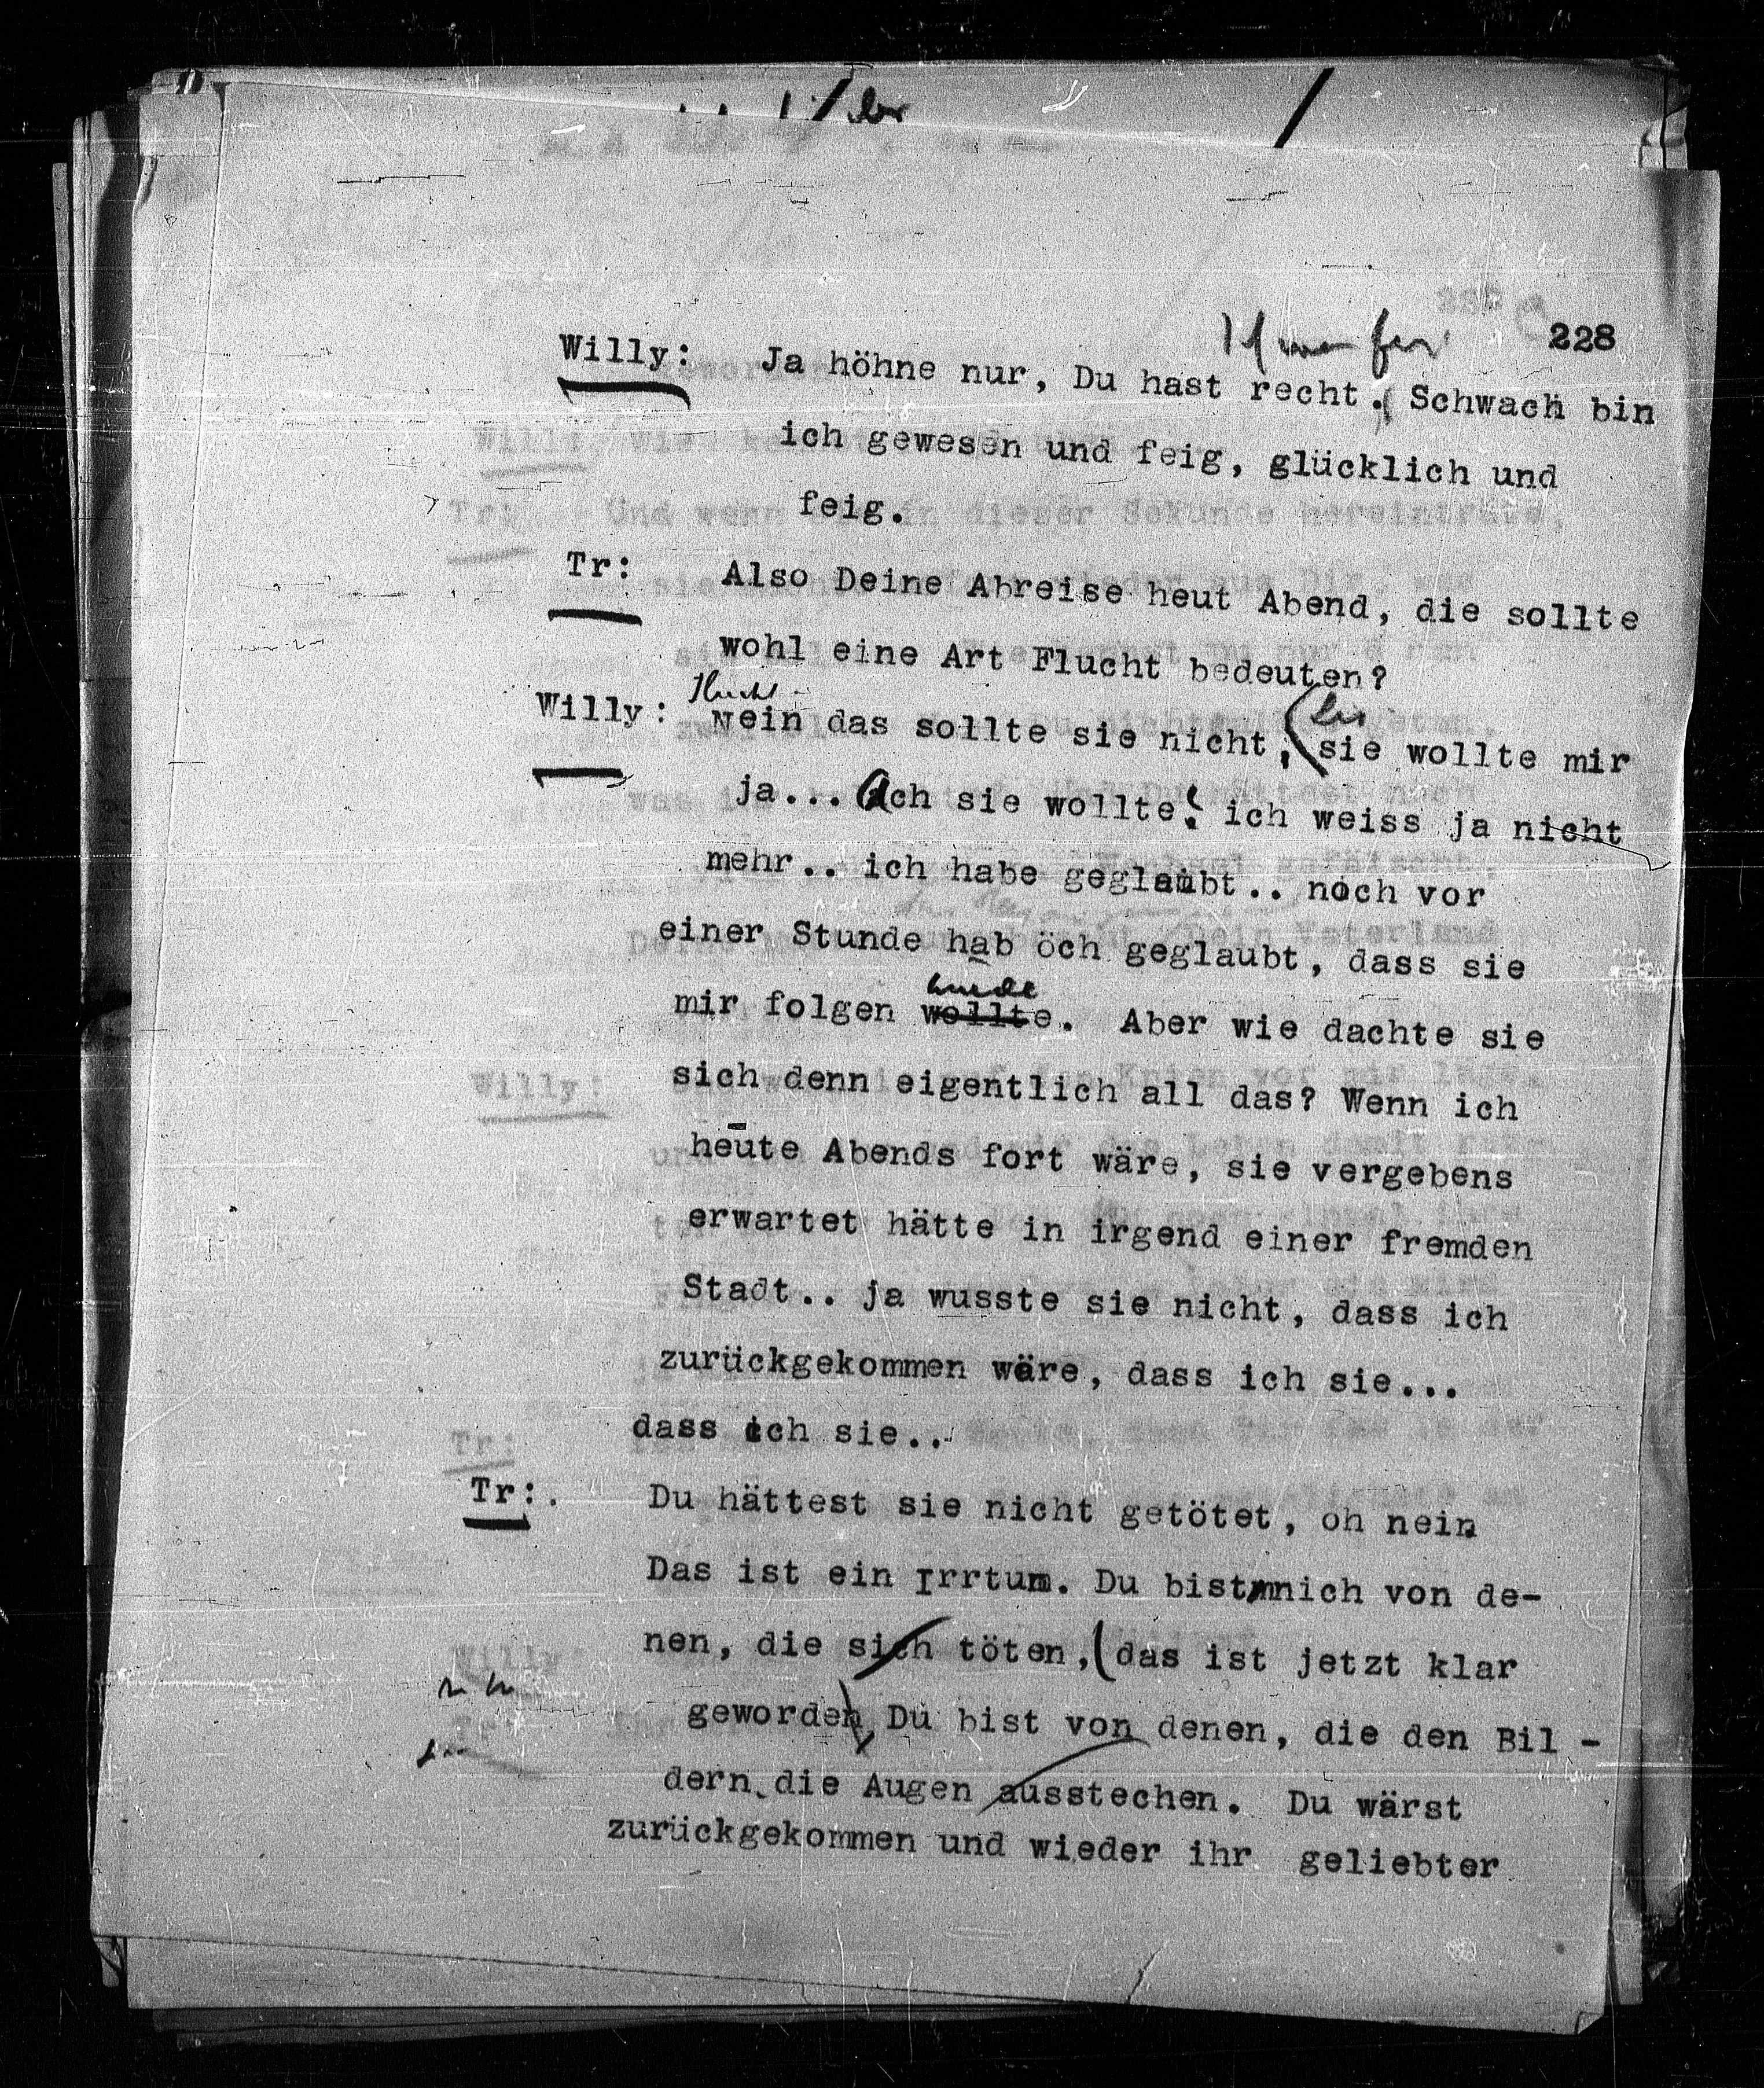 228
Willy: Ja höhne nur, Du hast recht. Schwach bin
ich gewesen und feig, glücklich und
feig.
Tr: Also Deine Abreise heut Abend, die sollte
wohl eine Art Flucht bedeuten?
Willy: Nein das sollte sie nicht, (sie wollte mir
ja... Ach sie wollte! ich weiss ja nicht
mehr.. ich habe geglaubt.. noch vor
einer Stunde hab öch geglaubt, dass sie
würde
mir folgen wollte. Aber wie dachte sie
sich denn eigentlich all das? Wenn ich
heute Abends fort wäre, sie vergebens
erwartet hätte in irgend einer fremden
Stadt.. ja wusste sie nicht, dass ich
zurückgekommen wäre, dass ich sie...
dass ich sie..
Tr:. Du hättest sie nicht getötet, oh nein
Das ist ein Irrtum. Du bist nich von de-
nen, die sich töten, (das ist jetzt klar
geworden) Du bist von denen, die den Bil -
dern die Augen ausstechen. Du wärst
zurückgekommen und wieder ihr geliebter